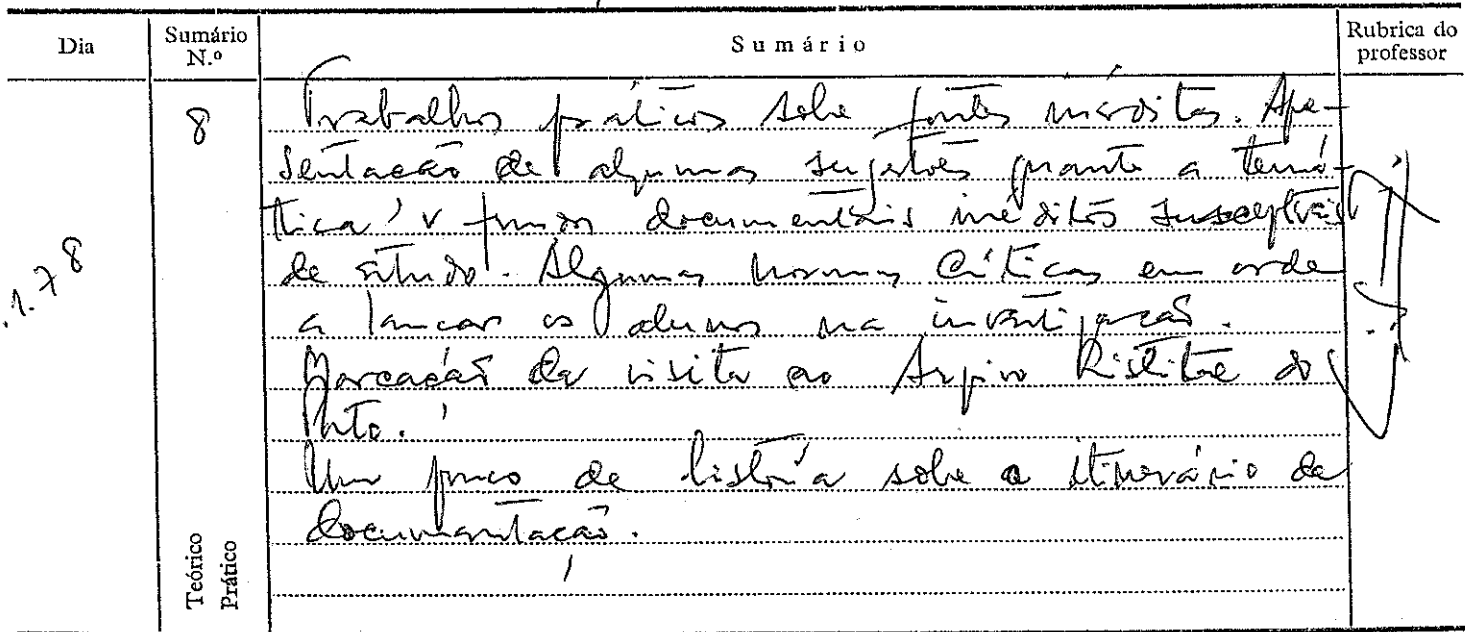 Dia
Sumário N.º
Sumário
Rubrica do professor
.1.78
8
Trabalhos práticos sobre fontes inéditas. Apre-
sentação de algumas sugestões quanto a temá-
tica e fundos documentais inéditos susceptíveis
de estudo. Algumas normas críticas em ordem
a lançar os alunos na investigação.
Marcação da visita ao Arquivo Distrital do
Porto.
Um pouco de história sobre o itinerário da
documentação.
Teórico
Prático